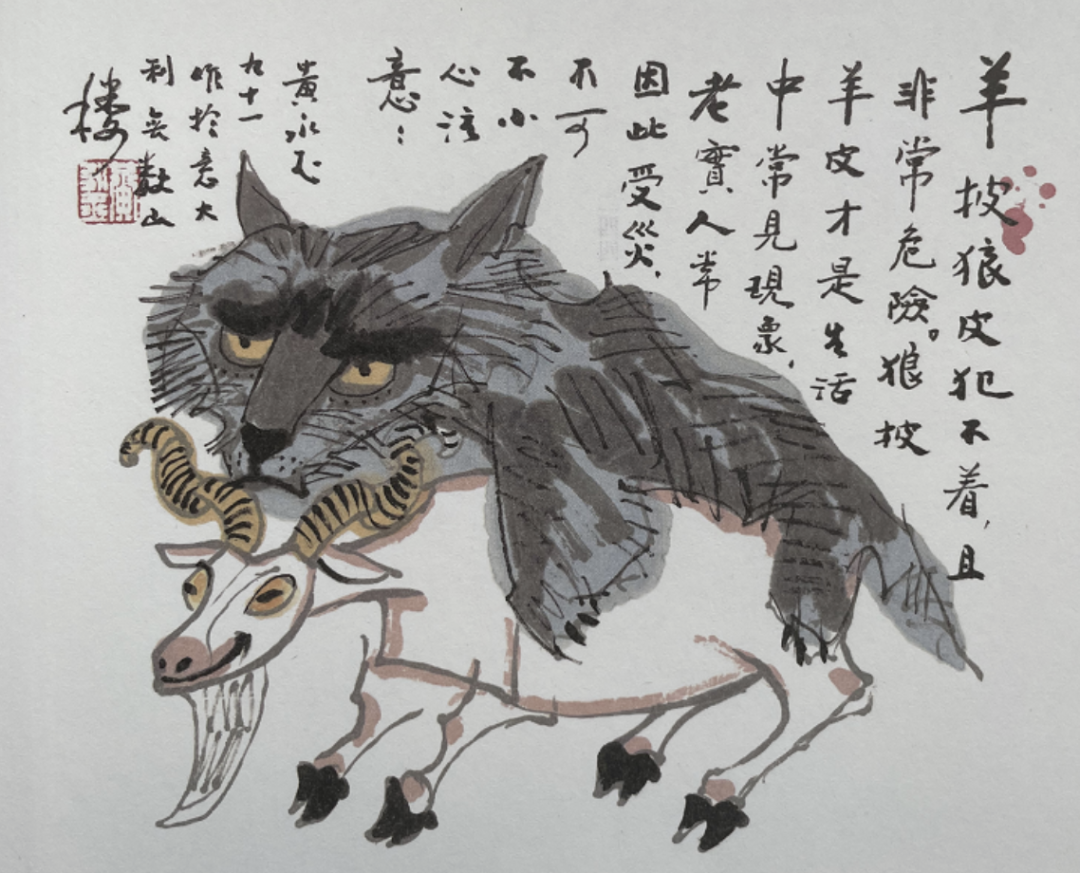 羊披狼皮犯不着,且
非常危險。狼披
羊皮才是生活
中常見現象,
老實人常
因此受災,
不可
不小
心注
意:
黃永玉
九十一
作於意大
利無數山
樓